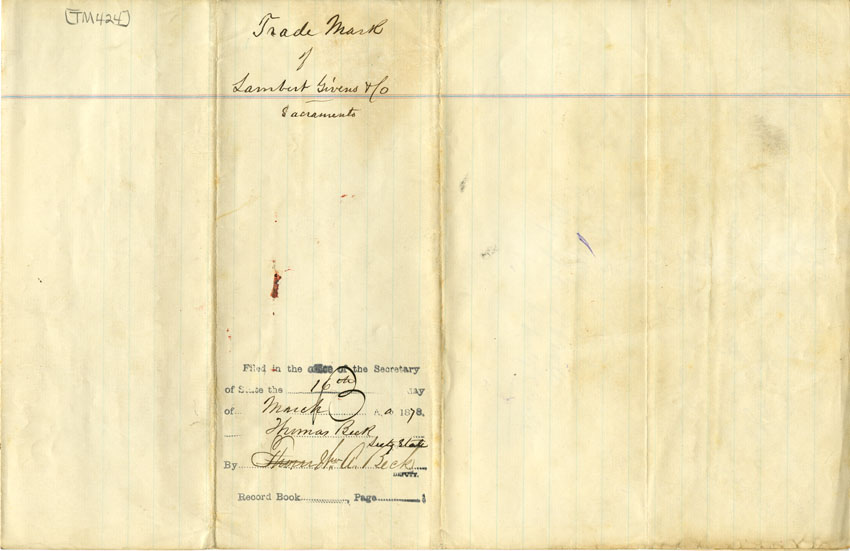 [TM424]
Trade Mark
of
Lambert Givens & Co
Sacramento
Filed in the office of the Secretary
of State the 16th day
of March A. D. 1878.
Thomas Beck
Secty State
By Thomas Wm A. Beck
DEPUTY.
Record Book Page